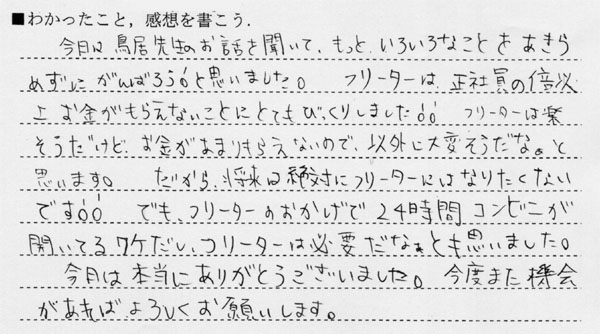 ■わかったこと，感想を書こう．
今日は鳥居先生のお話を聞いて、もっといろいろなことをあきら
めずにがんばろう!!と思いました。 フリーターは、正社員の倍以
上お金がもらえないことにとてもびっくりしました!! フリーターは楽
そうだけど、お金があまりもらえないので、以外に大変そうだなぁと
思います。 だから、将来は絶対にフリーターにはなりたくない
です!! でも、フリーターのおかげで24時間コンビニが
開いてるワケだし、フリーターは必要だなぁとも思いました。
今日は本当にありがとうございました。今度また機会
があればよろしくお願いします。